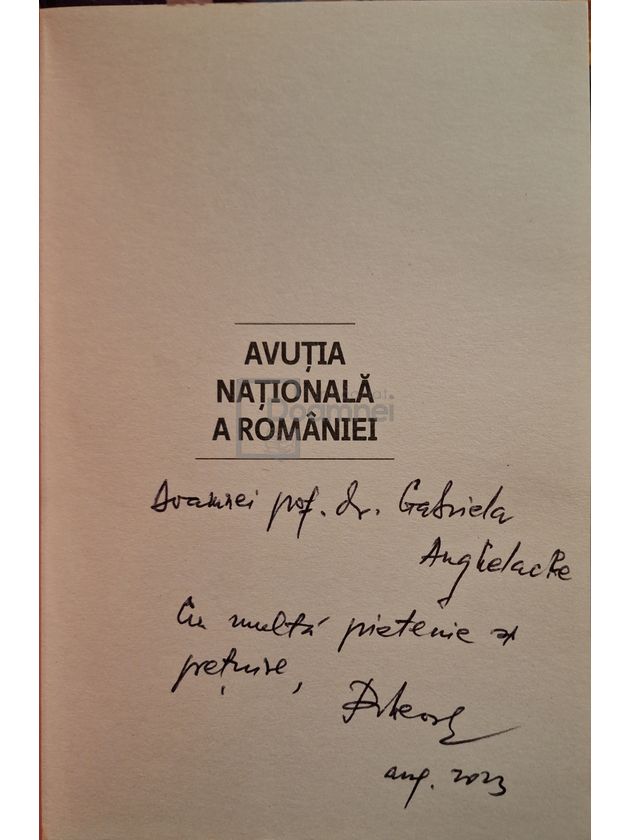 AVUȚIA
NAȚIONALĂ
A ROMÂNIEI
Doamnei prof. dr. Gabriela
Anghelache
Cu multă prietenie și
prețuire,
aug. 2023